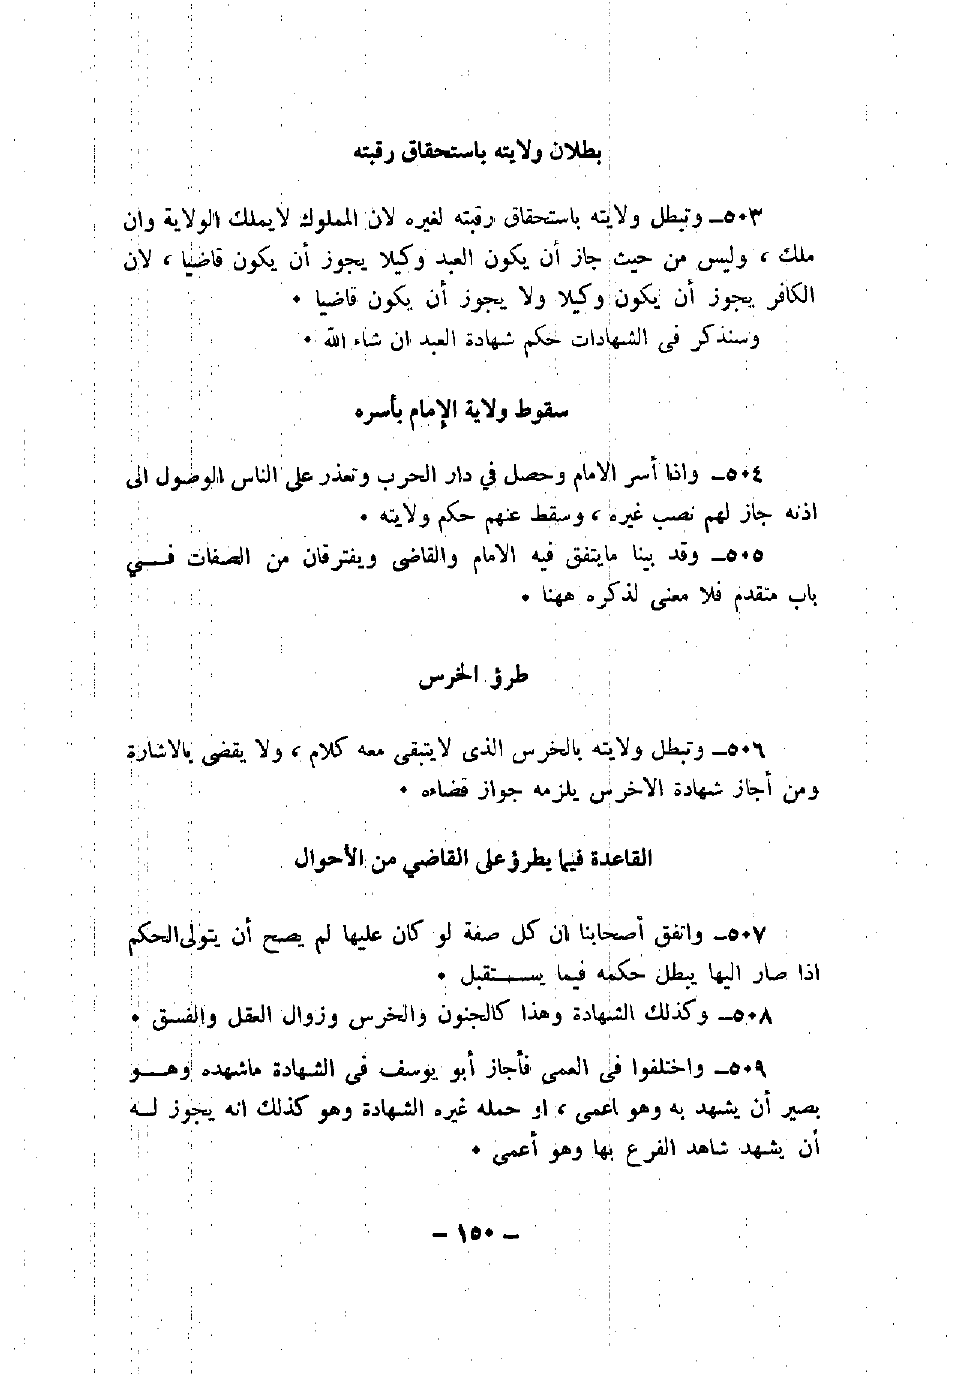 بطلان ولايته باستحقاق رقبته
٥٠٣ــ وتبطل ولايته باستحقاق رقبته لغيره لان المملوك لايملك الولاية وان
ملك ، وليس من حيث جاز أن يكون العبد وكيلا يجوز أن يكون قاضيا ، لان
الكافر يجوز أن يكون وكيلا ولا يجوز أن يكون قاضيا •
وسنذكر فى الشهادات حكم شهادة العبد ان شاء الله •
سقوط ولاية الإمام بأسره
٥٠٤ــ واذا أسر الامام وحصل في دار الحرب وتعذر على الناس الوصول الى
اذنه جاز لهم نصب غيره ، وسقط عنهم حكم ولايته •
٥٠٥ــ وقد بينا مايتفق فيه الامام والقاضى ويفترقان من الصفات فــي
باب متقدم فلا معنى لذكره ههنا •
طرؤ الخرس
٥٠٦ــ وتبطل ولايته بالخرس الذى لايتبقى معه كلام ، ولا يقضى بالاشارة
ومن أجاز شهادة الاخرس يلزمه جواز قضاءه •
القاعدة فيما يطرؤ على القاضي من الأحوال
٥٠٧ــ واتفق أصحابنا ان كل صفة لو كان عليها لم يصح أن يتولى الحكم
اذا صار اليها يبطل حكمه فيما يســتقبل •
٥٠٨ــ وكذلك الشهادة وهذا كالجنون والخرس وزوال العقل والفسق •
٥٠٩ــ واختلفوا فى العمى فأجاز أبو يوسف فى الشهادة ماشهده وهــو
بصير أن يشهد به وهو اعمى ، او حمله غيره الشهادة وهو كذلك انه يجوز لــه
أن يشهد شاهد الفرع بها وهو أعمى •
– ١٥٠ –